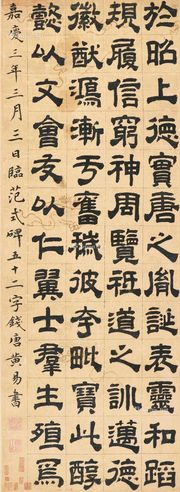 於昭上德實唐之胤誕表靈和蹈
規履信窮神周覽祗道之訓邁德
徽猷鴻漸于奮穢彼夸毗寶此醇
懿以文會友以仁翼士羣生殖焉
嘉慶三年三月三日臨范式碑五十二字錢唐黄易書